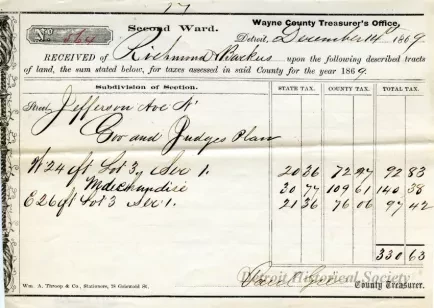 17
Second Ward.
Wayne County Treasurer's Office,
No 864
Detroit, December 14 1869
RECEIVED OF Richmond & Backus upon the following described tracts
of land, the sum stated below, for taxes assessed in said County for the year 1869.
Subdivision of Section. STATE TAX. COUNTY TAX. TOTAL TAX.
Street Jefferson Ave N
Gov and Judges Plan
W 24 ft Lot 3, Sec 1. 20 36 72 47 92 83
Merchandise 30 77 109 61 140 38
E 26 ft Lot 3 Sec 1. 21 36 76 06 97 42
330 63
Detroit Historical Society
Wm. A. Throop & Co., Stationers, County Treasurer.